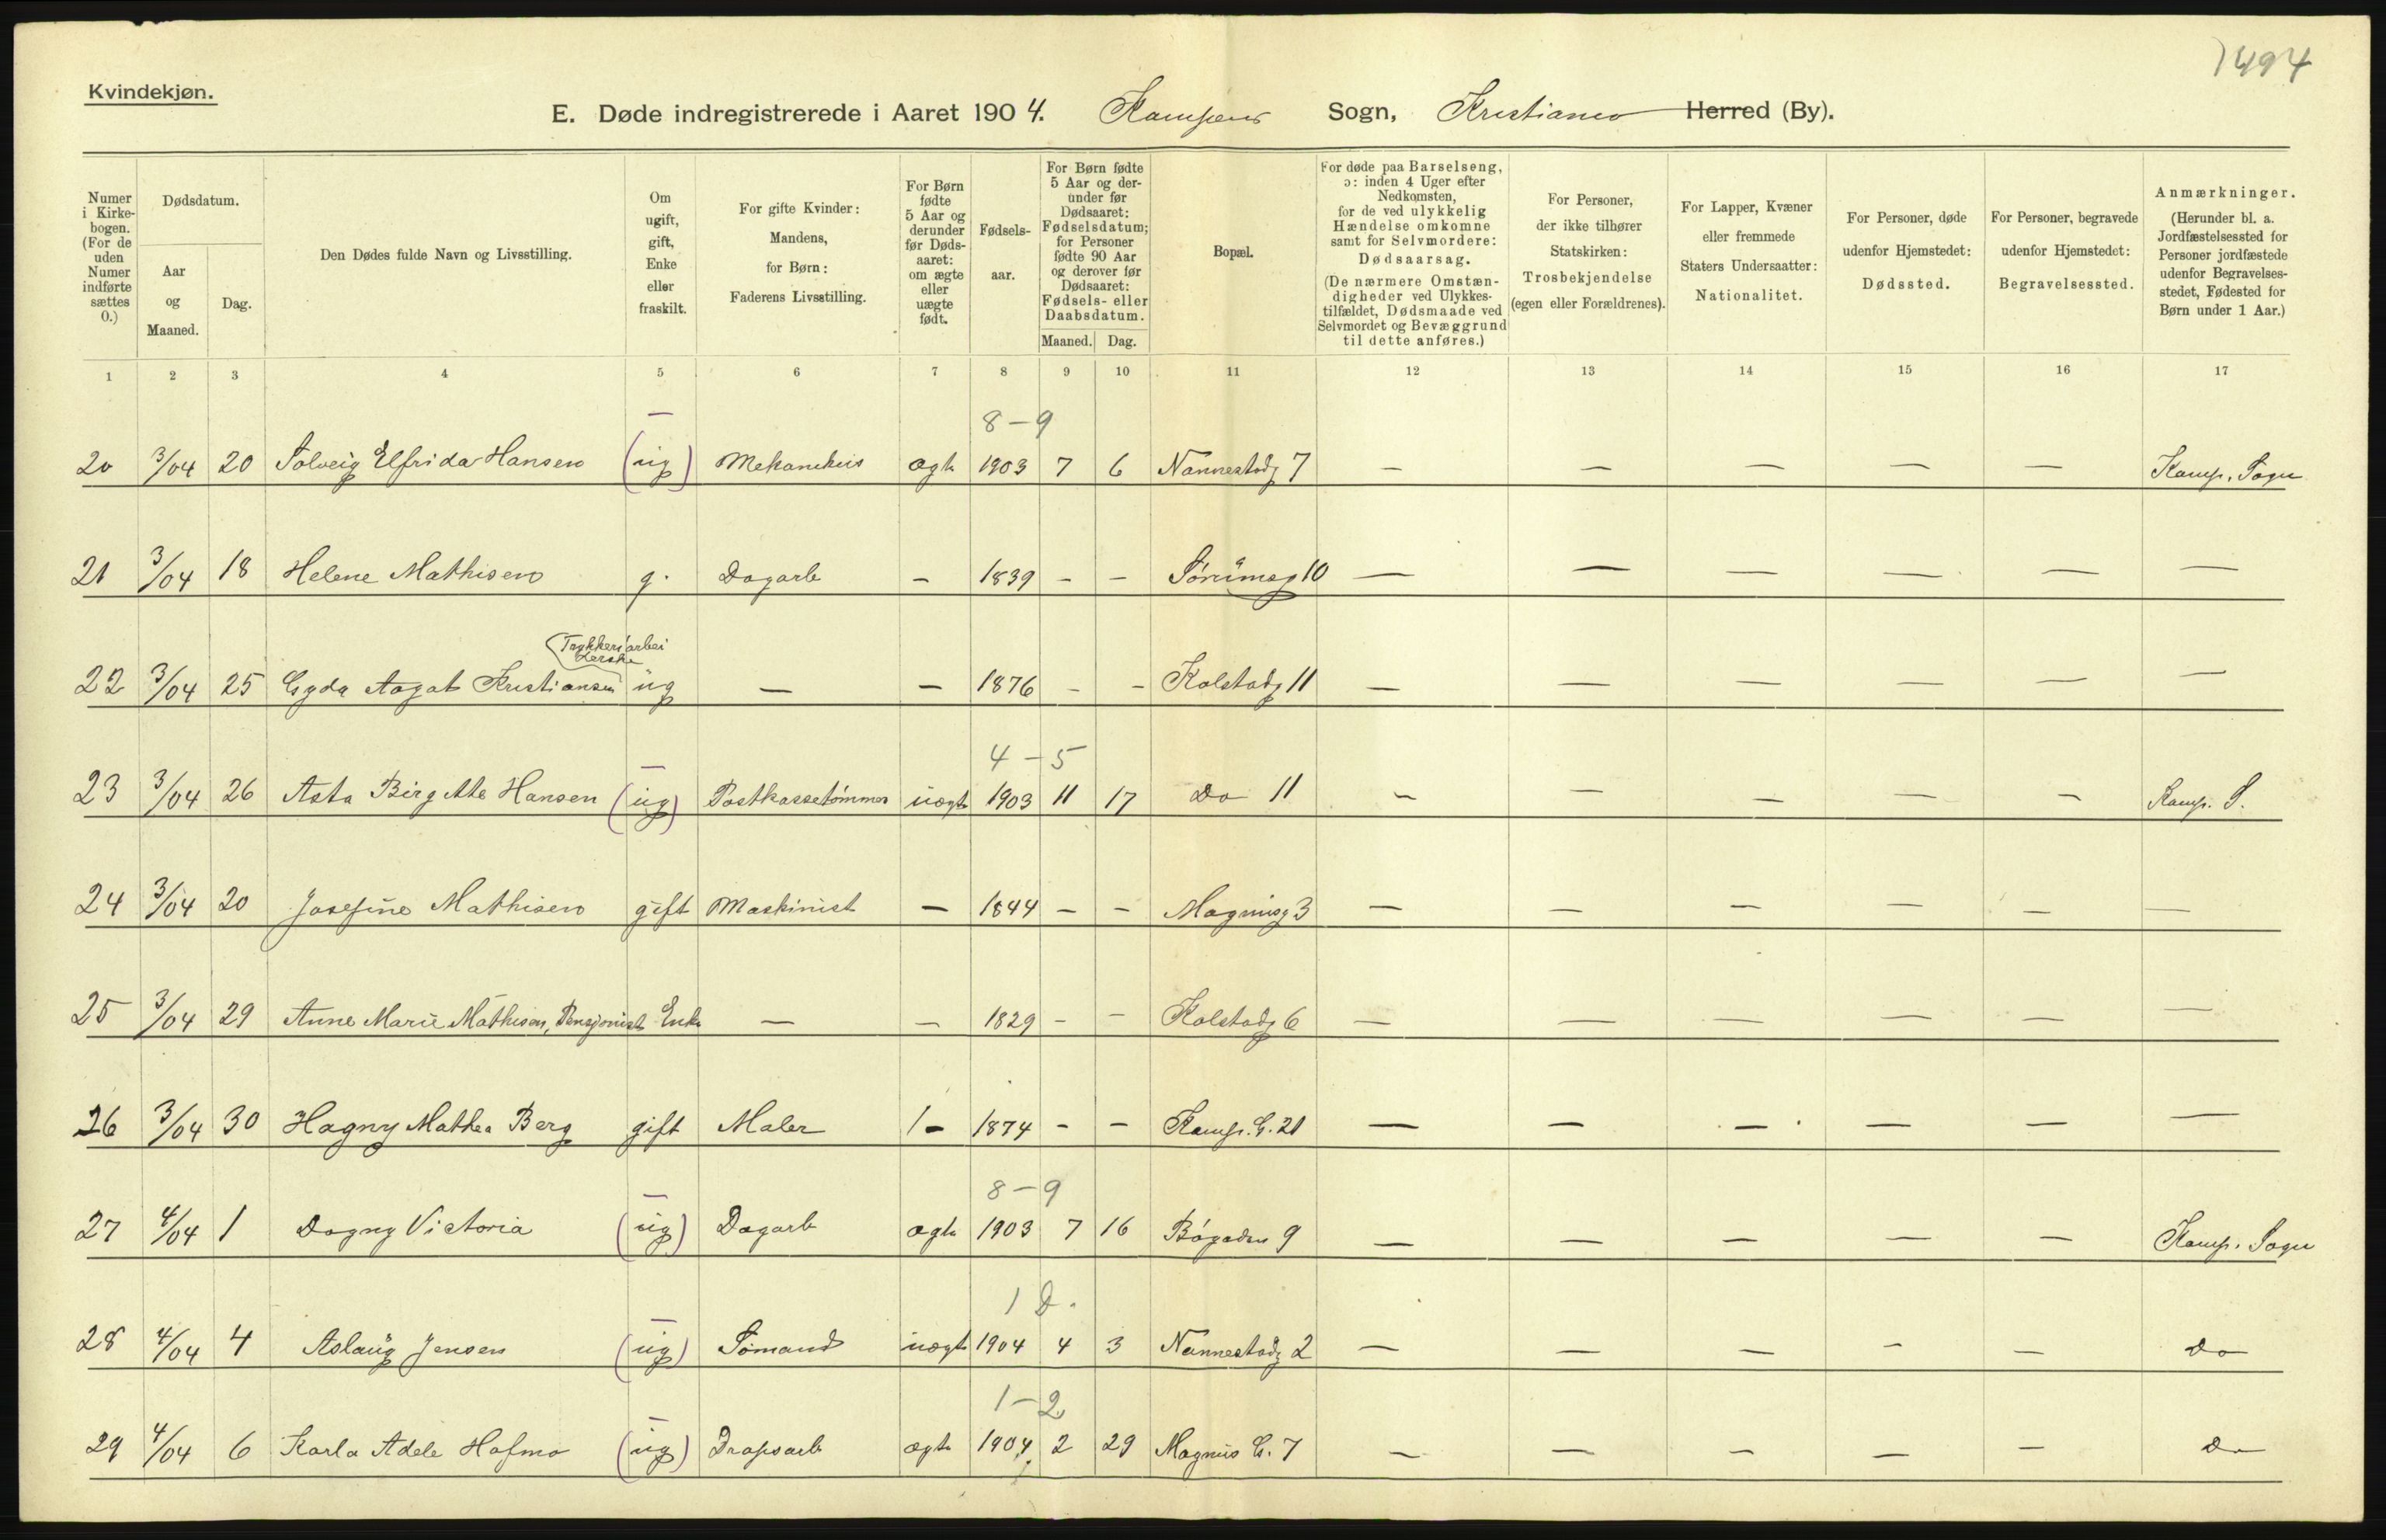 1494
Kvindekjøn.
E. Døde indregistrerede i Aaret 1904. Kampens Sogn, Kristiania Herred (By).
Numer i Kirkebogen. (For de uden Numer indførte sættes 0.)
Dødsdatum.
Aar og Maaned.
Dag.
Den Dødes fulde Navn og Livsstilling.
Om ugift, gift, Enke eller fraskilt.
For gifte Kvinder: Mandens, for Børn: Faderens Livsstilling.
For Børn fødte 5 Aar og derunder før Dødsaaret: om ægte eller uægte født.
Fødselsaar.
For Børn fødte 5 Aar og derunder før Dødsaaret: Fødselsdatum; for Personer fødte 90 Aar og derover før Dødsaaret: Fødsels- eller Daabsdatum.
Maaned. Dag.
Bopæl.
For døde paa Barselseng, ɔ: inden 4 Uger efter Nedkomsten, for de ved ulykkelig Hændelse omkomne samt for Selvmordere: Dødsaarsag. (De nærmere Omstændigheder ved Ulykkestilfældet, Dødsmaade ved Selvmordet og Bevæggrund til dette anføres.)
For Personer, der ikke tilhører Statskirken: Trosbekjendelse (egen eller Forældrenes).
For Lapper, Kvæner eller fremmede Staters Undersaatter: Nationalitet.
For Personer, døde udenfor Hjemstedet: Dødssted.
For Personer, begravede udenfor Hjemstedet: Begravelsessted.
Anmærkninger. (Herunder bl. a. Jordfæstelsessted for Personer jordfæstede udenfor Begravelsesstedet, Fødested for Børn under 1 Aar.)
1 2 3 4 5 6 7 8 9 10 11 12 13 14 15 16 17
8 – 9
20 3/04 20 Solveig Elfrida Hansen (ug) Mekanikus ægte 1903 7 6 Nannestadg 7 – – – – – Kamp. Sogn
21 3/04 18 Helene Mathisen g. Dagarb – 1839 – – 10 – – – – – –
Trykkeriarbei
derske
22 3/04 25 Gyda Aagot Kristiansen ug – – 1876 – – Kolstadg 11 – – – – – –
4 – 5
23 3/04 26 Asta Birgitte Hansen (ug) Postkassetømmer uægte 1903 11 17 Do 11 – – – – – Kamp. S.
24 3/04 20 Josefine Mathisen gift Maskinist – 1844 – – Magnusg 3 – – – – – –
25 3/04 29 Anne Marie Mathisen, Pensjonist Enke – – 1829 – – Kolstadg 6 – – – – – –
26 3/04 30 Hagny Mathea Berg gift Maler – 1874 – – Kamp. G. 21 – – – – – –
8 – 9
27 4/04 1 Dagny Victoria (ug) Dagarb ægte 1903 7 16 Bøgaden 9 – – – – – Kamp. Sogn
1 D.
28 4/04 4 Aslaug Jensen (ug) Sømand uægte 1904 4 3 Nannestadg 2 – – – – – Do
1 – 2
29 4/04 6 Karla Adele Hofmo (ug) Dropsarb ægte 1904 2 29 Magnus G. 7 – – – – – Do